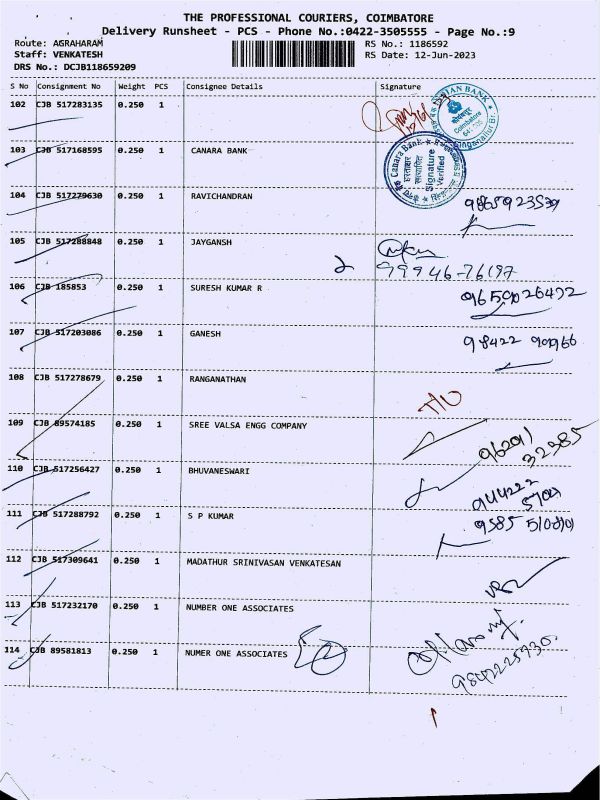 THE PROFESSIONAL COURIERS, COIMBATORE
Delivery Runsheet - PCS - Phone No.:0422-3505555 - Page No.:9
Route: AGRAHARAM RS No.: 1186592
Staff: VENKATESH RS Date: 12-Jun-2023
DRS No.: DCJB118659209
S No Consignment No Weight PCS Consignee Details Signature
102 CJB 517283135 0.250 1
INDIAN BANK
Coimbatore
103 CJB 517168595 0.250 1 CANARA BANK
Canara Bank
Signature
Verified
104 CJB 517279630 0.250 1 RAVICHANDRAN
105 CJB 517288848 0.250 1 JAYGANSH
99946-76197
106 CJB 185853 0.250 1 SURESH KUMAR R
9659026432
107 CJB 517203086 0.250 1 GANESH
98422
108 CJB 517278679 0.250 1 RANGANATHAN
109 CJB 89574185 0.250 1 SREE VALSA ENGG COMPANY
32385
110 CJB 517256427 0.250 1 BHUVANESWARI
944222
111 CJB 517288792 0.250 1 S P KUMAR
9585
112 CJB 517309641 0.250 1 MADATHUR SRINIVASAN VENKATESAN
113 CJB 517232170 0.250 1 NUMBER ONE ASSOCIATES
114 CJB 89581813 0.250 1 NUMER ONE ASSOCIATES